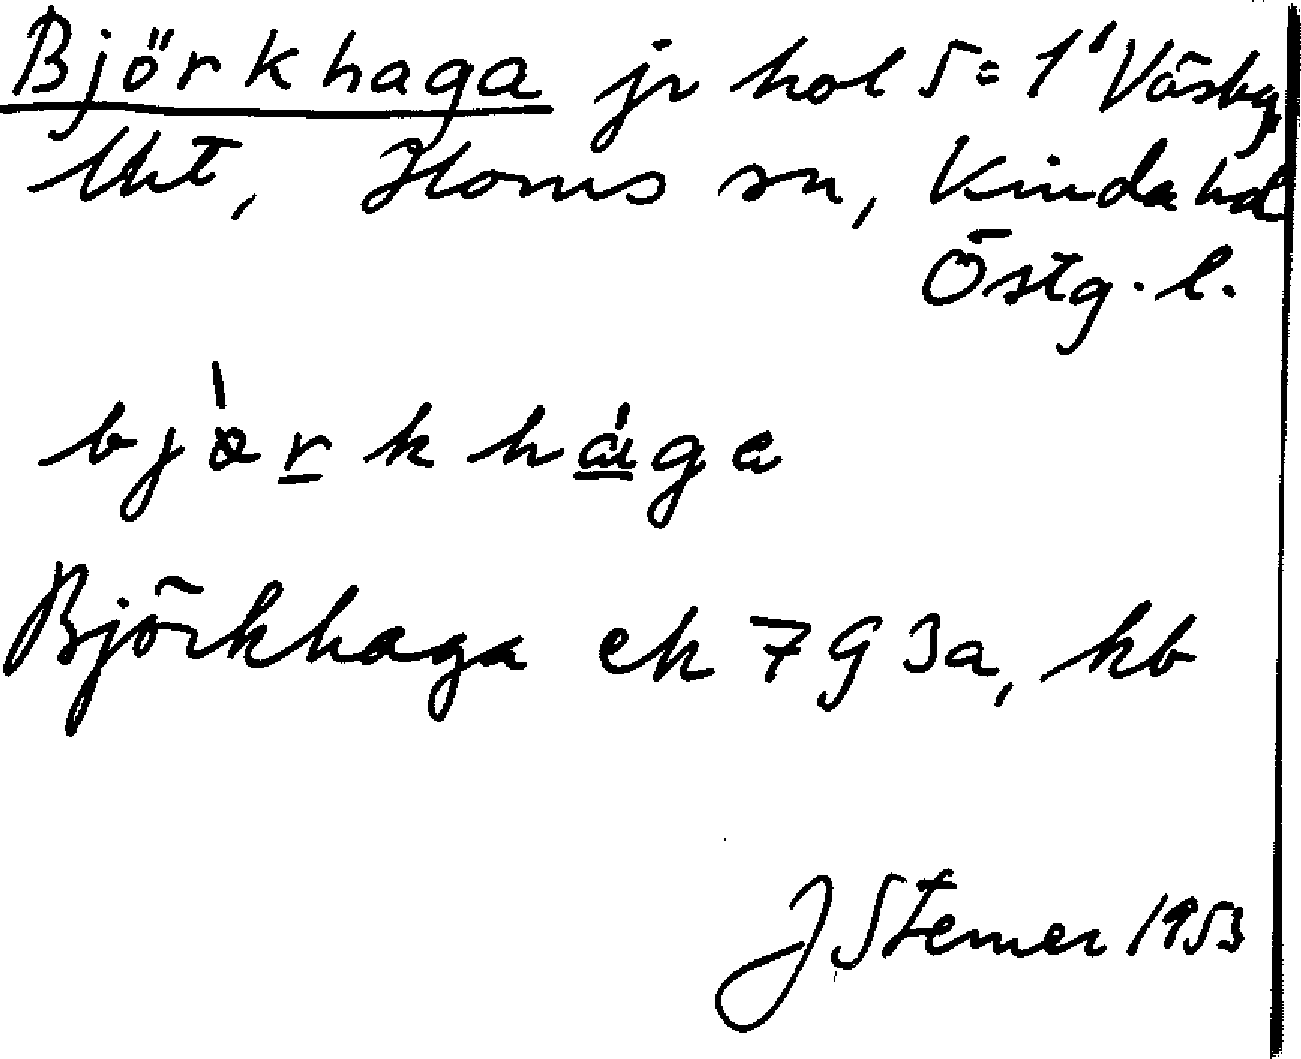 Björkhaga jr kol 5 = 1¹ Väsby
Uht, Horns sn, Kinda hd
Östg. l.
bjò̱rkhága
Björkhaga ek 7 G 3a, kb
J Sterner 1953